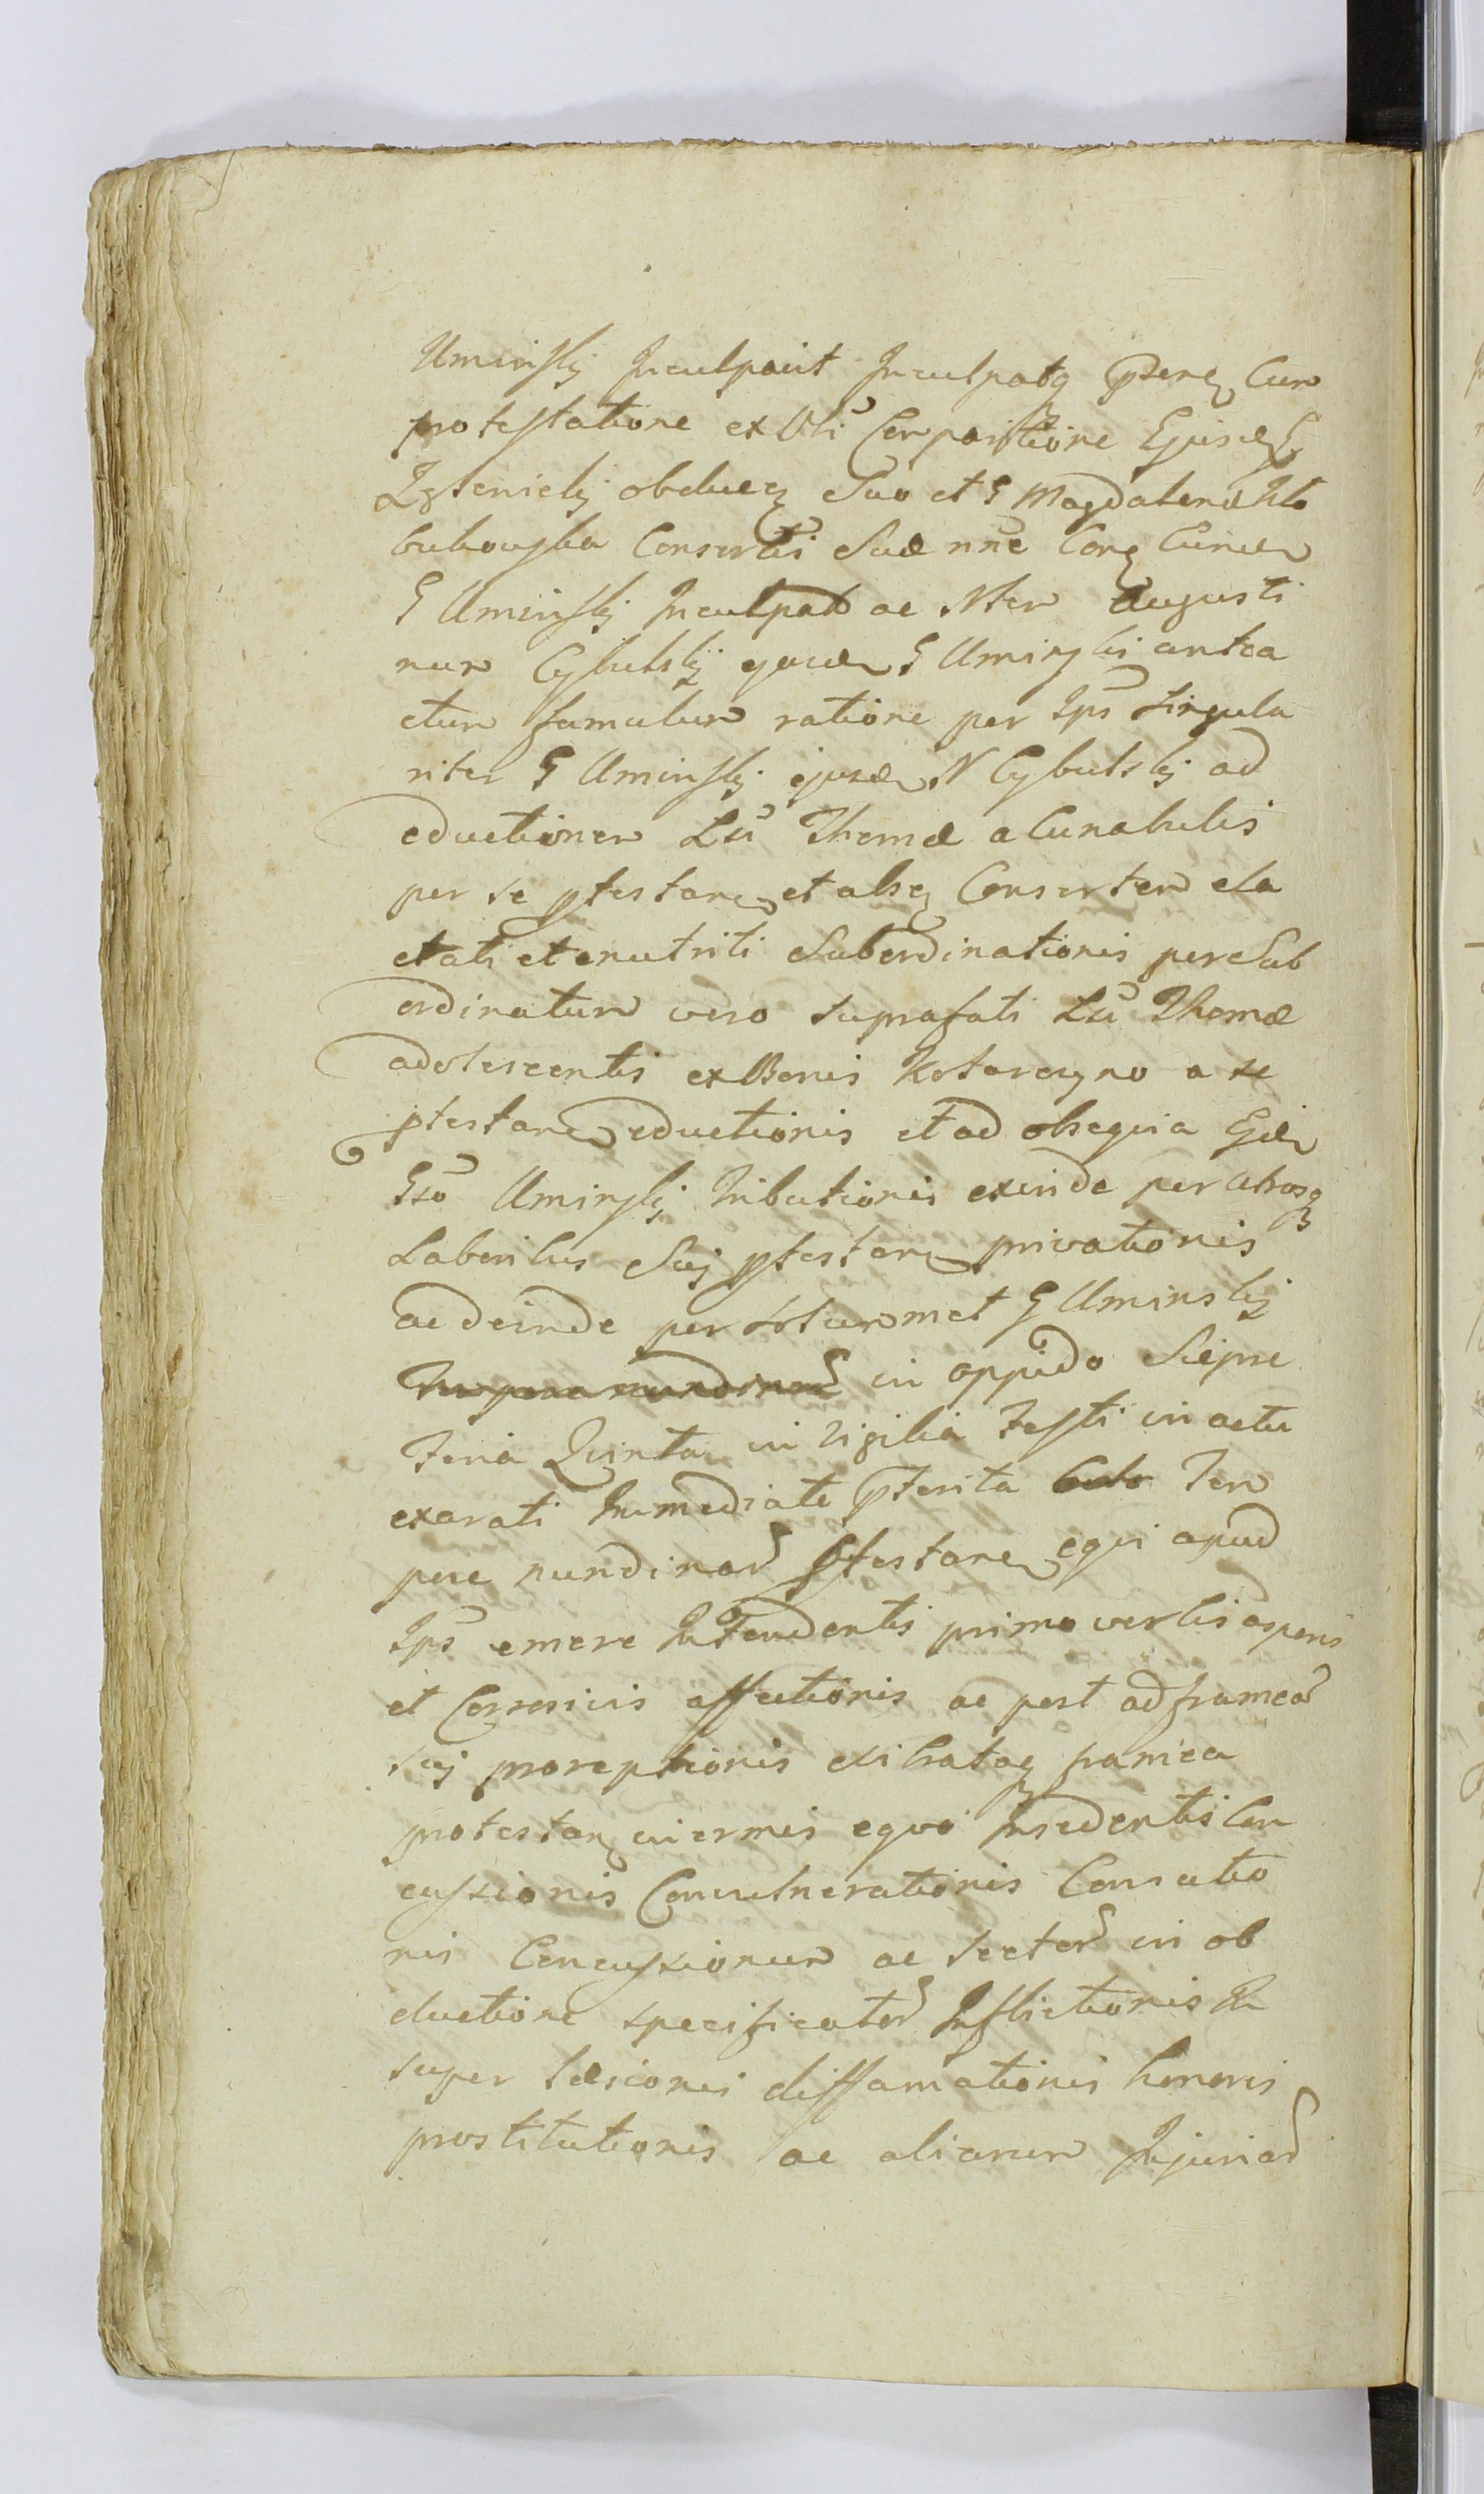 Uminskij Inculpavit Inculpatq Cum
protestatione ex Vti Comparitione Ejusd G
obducq Suo et G Magdalena Klo
bukowska Consortis Suæ nñe Conq Eundem
G Uminskij Inculpat ac Nten Augusti
num Cybulskij ejusd G Uminski antea
ctum famulum ratione per Ips singula
riter G Uminskij ejusd N Cybulskij ad
eductionem Lñ Thomæ a Cunabulis
per se ptestanq et absq Consortem ela
ctati et enutriti Subordinationis per Sub
ordinatum vero suprafati Lñ Thomæ
adolescentis ex Bonis Kotarczyno a se
ptestanq eductionis et ad obsequia Ejd
Gso Uminskij Tributionis exinde per ahosq
Laboribus Suj ptestanq privationis
ac deinde per solummet G Uminskij
in oppido Sierpse
Feria Quinta in Vigilia Festi in actu
exarati Immediate pterita Tem
pore nundinar ptestanq equi apud
Ips emere Intendentis primo verbis asperis
et Corrosivis affectionis ac post ad frameā
suj proreptionis evibrataq framea
protestanq inermis equo Insedentis Con
cussionis Convulnerationis Consectio
nis Concussionum ac sector in ob
ductione specificator Inflictionis In
super læsionis diffamationis honoris
prostitutionis ac aliarum Injuriar